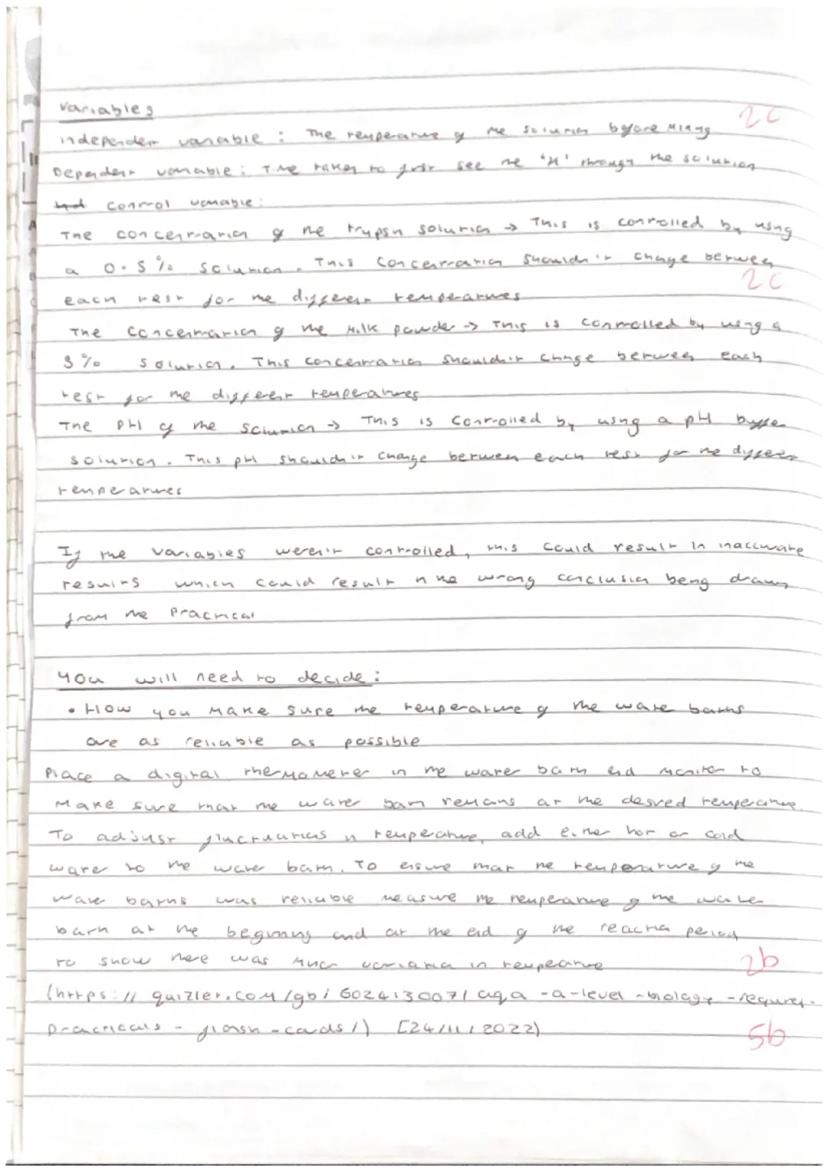 Variables
2c
independent variable : The temperature of the solution before mixing
Dependent variable : Time taken to first see the 'X' through the solution
control variable :
The concentration of the trypsin solution → This is controlled by using
a 0.5% solution. This concentration shouldn't change between
2c
each test for the different temperatures
The concentration of the milk powder → This is controlled by using a
3% solution. This concentration shouldn't change between each
test for the different temperatures
The pH of the solution → This is controlled by using a pH buffer
solution. This pH shouldn't change between each test for the different
temperatures
If the variables weren't controlled, this could result in inaccurate
results which could result in the wrong conclusion being drawn
from the practical
You will need to decide :
• How you make sure the temperature of the water baths
are as reliable as possible
Place a digital thermometer in the water bath and monitor to
make sure that the water bath remains at the desired temperature.
To adjust fluctuations in temperature, add either hot or cold
water to the water bath. To ensure that the temperature of the
water baths was reliable measure the temperature of the water
bath at the beginning and at the end of the reaction period
to show there was variation in temperature
2b
(https://quizlet.com/gb/602413007/aqa-a-level-biology-required-
practicals-flash-cards/) [24/11/2022]
5b